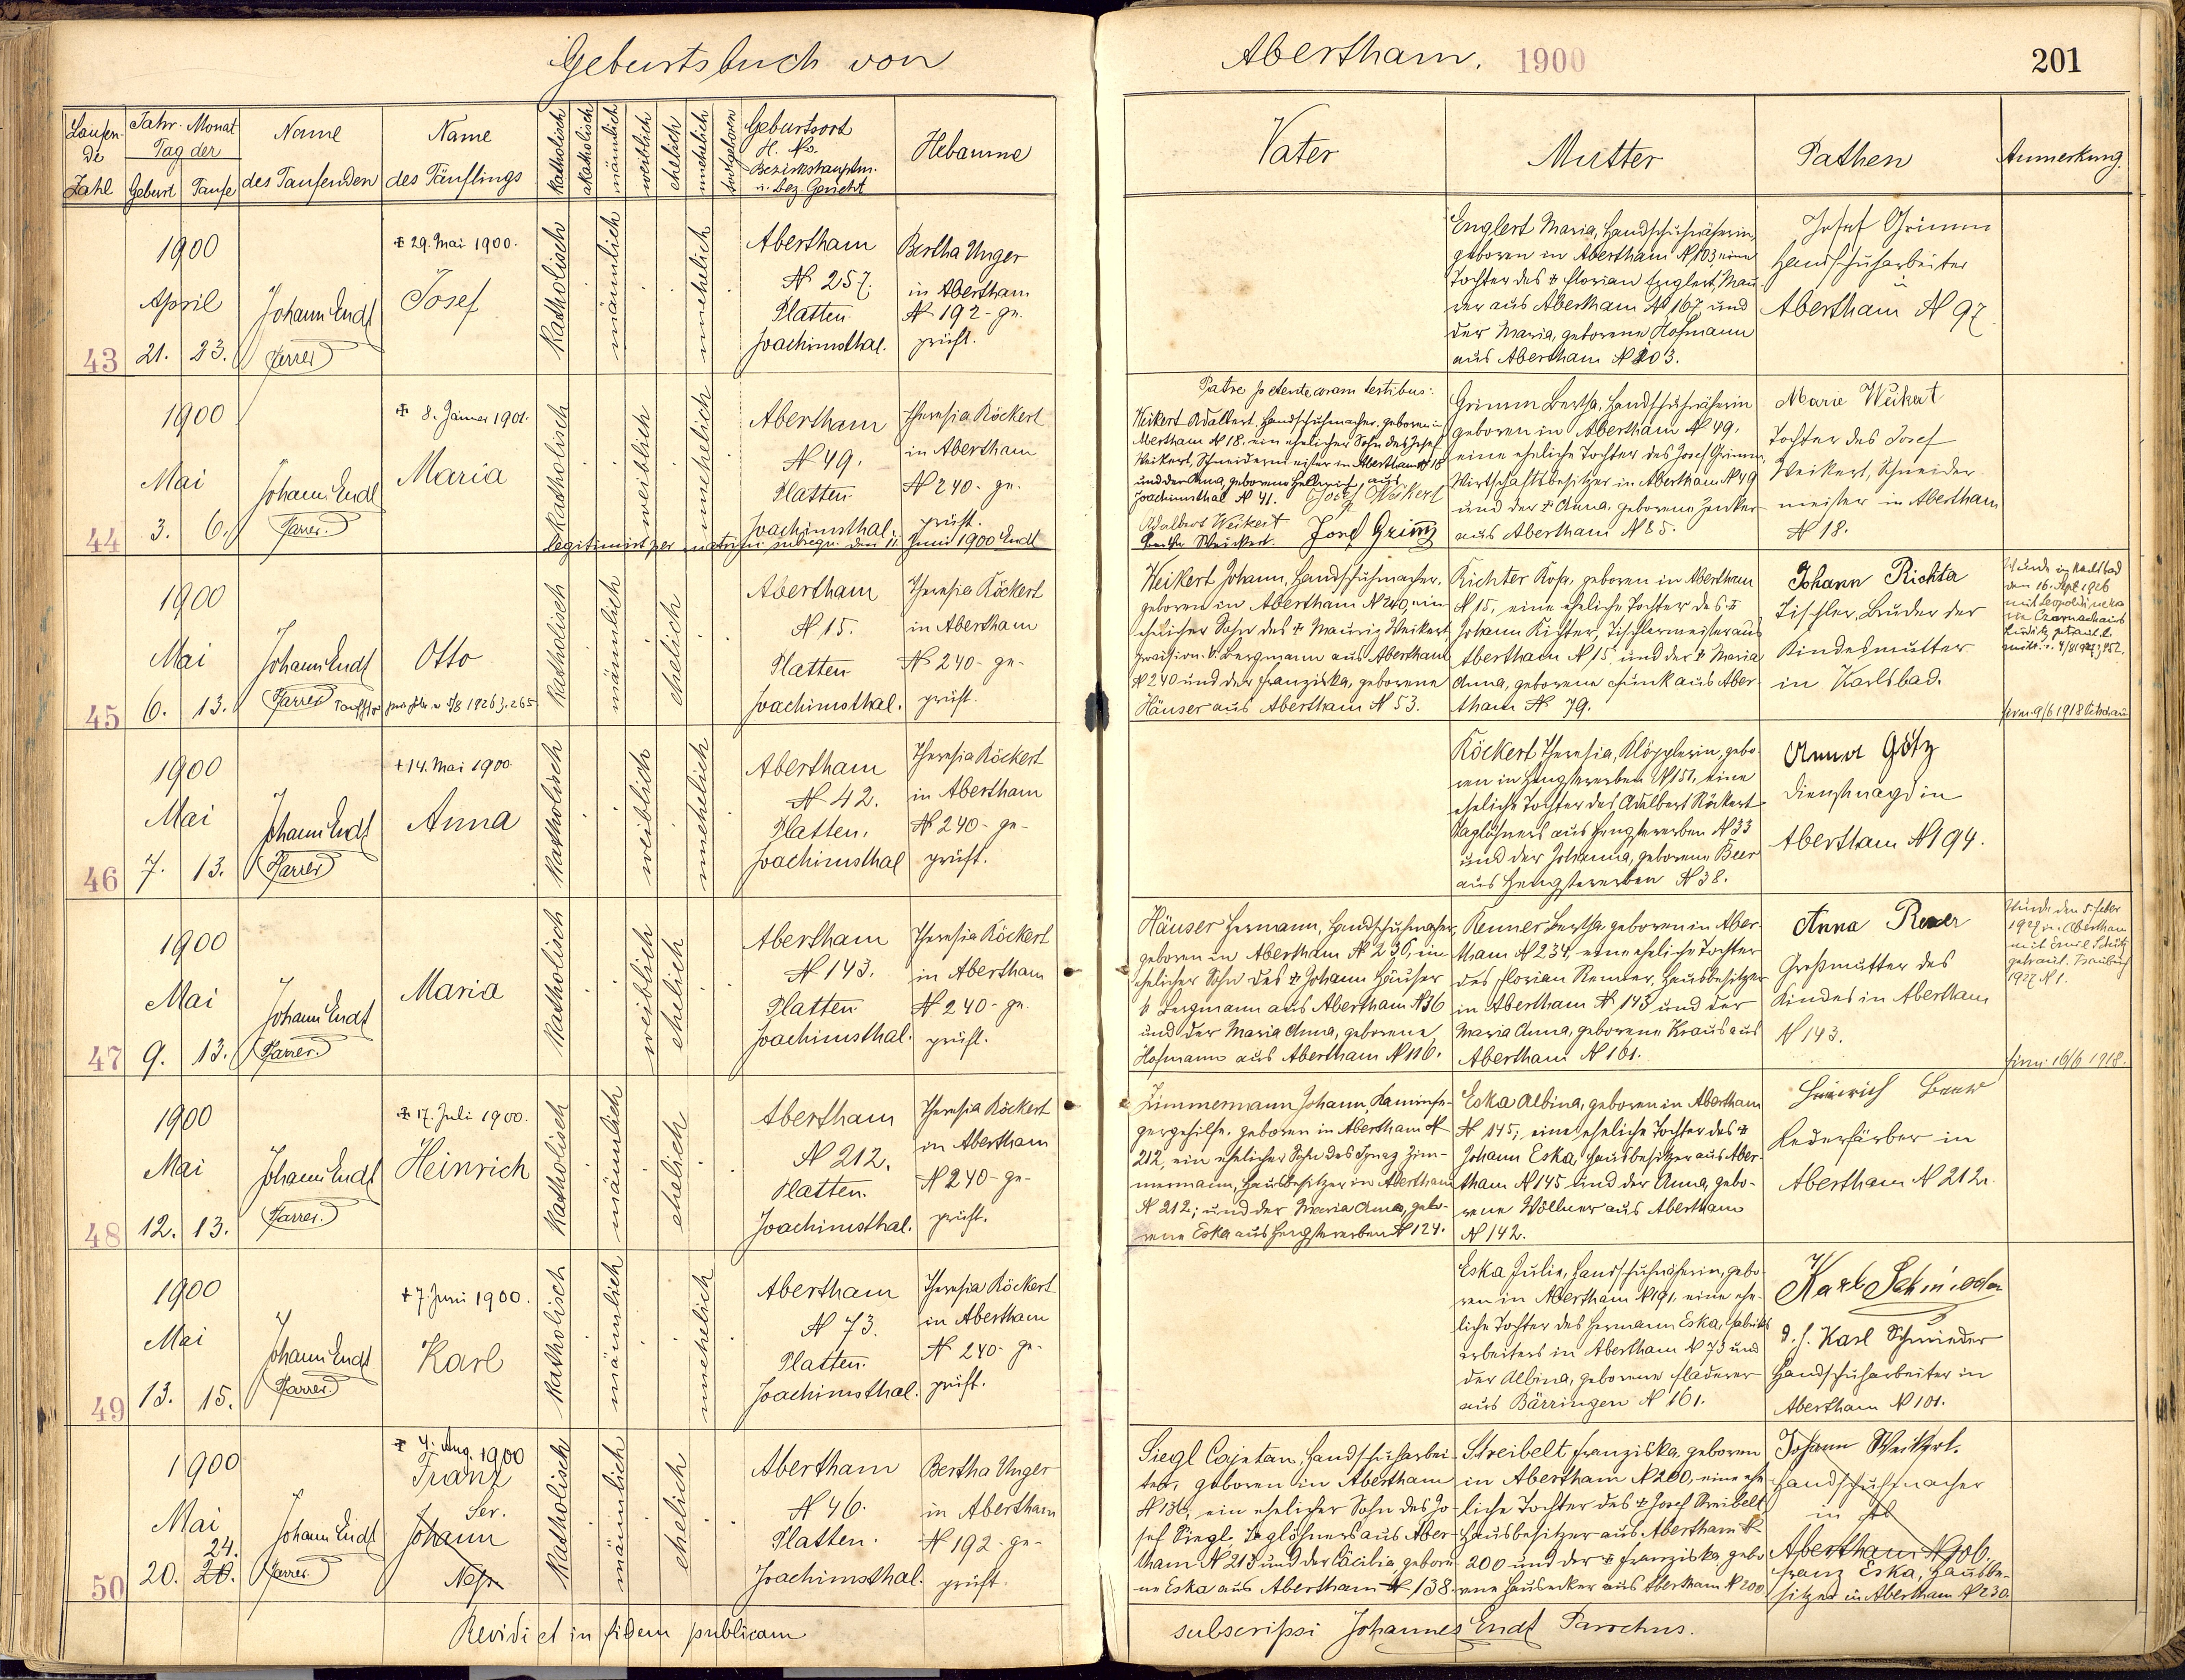 Geburtsbuch von
Abertham. 1900
201
Laufende Zahl
Jahr Monat Tag der
Geburt
Taufe
Name des Taufenden
Name des Täuflings
katholisch
akatholisch
männlich
weiblich
ehelich
unehelich
todtgeboren
Geburtsort
H. No.
Bezirkshauptm.
u. bez. Gericht
Hebamme
Vater
Mutter
Pathen
Anmerkung.
43
1900
April
21. 23.
Johann Endt
Pfarrer
✠ 29. Mai 1900.
Josef
katholisch
männlich
unehelich
Abertham
№ 257.
Platten
Joachimsthal.
Bertha Unger
in Abertham
№ 192 - ge-
prüft.
Englert Maria, Handschuhnäherin,
geboren in Abertham № 103 eine
Tochter des ✠ Florian Englert, Mau-
rer aus Abertham № 167 und
der Maria, geborene Hofmann
aus Abertham № 203.
Josef Grimm
Handschuharbeiter
in
Abertham № 97
44
1900
Mai
3. 6.
Johann Endt
Pfarrer.
✠ 8. Jänner 1901.
Maria
katholisch
weiblich
unehelich
Abertham
№ 49.
Platten
Joachimsthal.
Theresia Röckert
in Abertham
№ 240 - ge-
prüft.
legitimirt per matrim. subsequ. den 11. Juni 1900 Endt
Patre petente coram testibus:
Weikert Adalbert, Handschuhmacher, geboren in
Abertham № 18. ein ehelicher Sohn des Josef
Weikert, Schneidermeister in Abertham № 18
und der Anna, geborene aus
Joachimsthal № 41. Josef Weikert
Adalbert Weikert Josef Grimm
Grimm Bertha, Handschuhnäherin
geboren in Abertham № 49.
eine eheliche Tochter des Josef Grimm,
Wirtschaftsbesitzer in Abertham № 49
und der ✠ Anna, geborene Zenker
aus Abertham № 25.
Marie Weikert
Tochter des Josef
Weikert, Schneider-
meister in Abertham
№ 18.
45
1900
Mai
6. 13.
Johann Endt
Pfarrer
Otto
katholisch
männlich
ehelich
Abertham
№ 15.
Platten
Joachimsthal.
Theresia Röckert
in Abertham
№ 240 - ge-
prüft.
Weikert Johann, Handschuhmacher,
geboren in Abertham № 240, ein
ehelicher Sohn des ✠ Mauriz Weikert,
provision. k. Bergmann aus Abertham
№ 240 und der Franziska, geborene
Häuser aus Abertham № 53.
Richter Rosa, geboren in Abertham
№ 15, eine eheliche Tochter des ✠
Johann Richter, Tischlermeister aus
Abertham № 15, und der ✠ Maria
Anna, geborene Funk aus Aber-
tham № 79.
Johann Richter
Tischler, Bruder der
Kindesmutter
in Karlsbad.
Wurde in Karlsbad
am 16. Sept. 1926
mit
getraut
firm. 9/6 1918
46
1900
Mai
7. 13.
Johann Endt
Pfarrer
+ 14. Mai 1900.
Anna
katholisch
weiblich
unehelich
Abertham
№ 42.
Platten.
Joachimsthal
Theresia Röckert
in Abertham
№ 240 - ge-
prüft.
Röckert Theresia, Klöpplerin, gebo-
ren in Hengstererben № 151, eine
eheliche Tochter des Adalbert Röckert
Taglöhners aus Hengstererben № 33
und der Johanna, geborene Beer
aus Hengstererben № 38.
Anna Götz
Dienstmagd in
Abertham № 194.
47
1900
Mai
9. 13.
Johann Endt
Pfarrer.
Maria
katholisch
weiblich
ehelich
Abertham
№ 143.
Platten
Joachimsthal.
Theresia Röckert
in Abertham
№ 240 - ge-
prüft.
Häuser Hermann, Handschuhmacher,
geboren in Abertham № 236, ein
ehelicher Sohn des ✠ Johann Häuser
k. Bergmann aus Abertham № 36
und der Maria Anna, geborene
Hofmann aus Abertham № 116.
Renner Bertha, geboren in Aber-
tham № 234, eine eheliche Tochter
des Florian Renner, Hausbesitzer
in Abertham № 143 und der
Maria Anna, geborene Kraus aus
Abertham № 161.
Anna
Großmutter des
Kindes in Abertham
№ 143.
Wurde den 5. Feber
1927 in Abertham
mit Emil Schütz
getraut. Traubuch
1927 № 1.
firm. 16/6 1918.
48
1900
Mai
12. 13.
Johann Endt
Pfarrer.
✠ 17. Juli 1900.
Heinrich
katholisch
männlich
ehelich
Abertham
№ 212.
Platten.
Joachimsthal.
Theresia Röckert
in Abertham
№ 240 - ge-
prüft.
Zimmermann Johann, Kaminfe-
gergehilfe, geboren in Abertham №
212, ein ehelicher Sohn des Ignaz Zim-
mermann, Hausbesitzer in Abertham
№ 212; und der Maria Anna, gebo-
rene Eska aus Hengstererben № 124.
Eska Albina, geboren in Abertham
№ 145; eine eheliche Tochter des ✠
Johann Eska, Hausbesitzer aus Aber-
tham № 145 und der Anna, gebo-
rene Wöllner aus Abertham
№ 142.
Heinrich
Lederfärber in
Abertham № 212.
49
1900
Mai
13. 15.
Johann Endt
Pfarrer.
+ 7. Juni 1900.
Karl
katholisch
männlich
unehelich
Abertham
№ 73.
Platten.
Joachimsthal.
Theresia Röckert
in Abertham
№ 240 - ge-
prüft.
Eska Julie, Handschuhnäherin, gebo-
ren in Abertham № 191, eine ehe-
liche Tochter des Hermann Eska, Fabriks-
arbeiters in Abertham № 73 und
der Albina, geborene Fladerer
aus Bärringen № 161.
Karl Schmieder
d. h. Karl Schmieder
Handschuharbeiter in
Abertham № 101.
50
1900
Mai
24.
20. 20.
Johann Endt
Pfarrer.
✠ 4. Aug. 1900
Franz
Ser.
Johann
katholisch
männlich
ehelich
Abertham
№ 46.
Platten.
Joachimsthal.
Bertha Unger
in Abertham
№ 192 - ge-
prüft.
Siegl Cajetan, Handschuharbei-
ter, geboren in Abertham
№ 136, ein ehelicher Sohn des Jo-
sef Siegl, Taglöhners aus Aber-
tham № 213 und der Cäcilia, gebore-
ne Eska aus Abertham № 138.
Streibelt Franziska, geboren
in Abertham № 200, eine ehe-
liche Tochter des ✠ Josef Streibelt
Hausbesitzer aus Abertham №
200 und der ✠ Franziska, gebo-
rene aus Abertham № 200
Johann Weikert.
Handschuhmacher
in
Abertham
Franz Eska, Hausbe-
sitzer in Abertham № 230.
Revidi et in fidem publicam
subscripsi Johannes Endt Parochus.